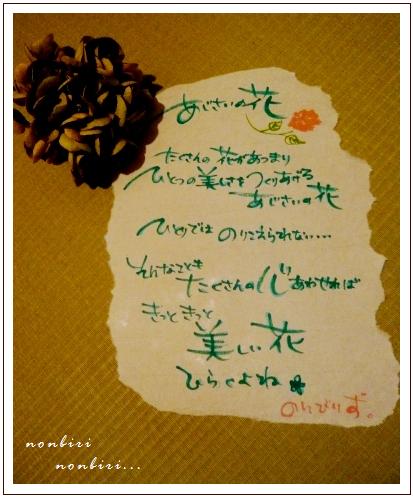 あじさいの花
たくさんの花があつまり
ひとつの美しさをつくりあげる
あじさいの花
ひとりでは のりこえられない…
そんなことも
たくさんの心あわせれば
きっときっと
美しい花
ひらくよね
のんびりず。
nonbiri
nonbiri...